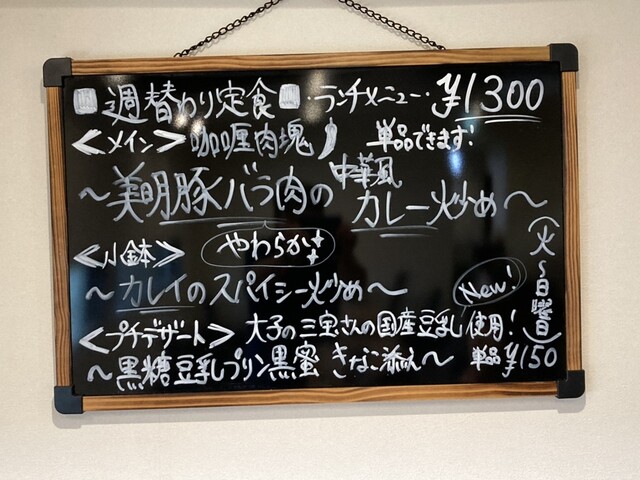 週替わり定食 ・ランチメニュー・ ¥1300
<メイン> 咖喱肉塊 単品できます!
～美明豚バラ肉の 中華風 カレー炒め～
やわらか
<小鉢>
～カレイのスパイシー炒め～
(火～日曜日)
New!
<プチデザート> 大子の三宝さんの国産豆乳使用!
～黒糖豆乳プリン黒蜜 きなこ添え～ 単品¥150